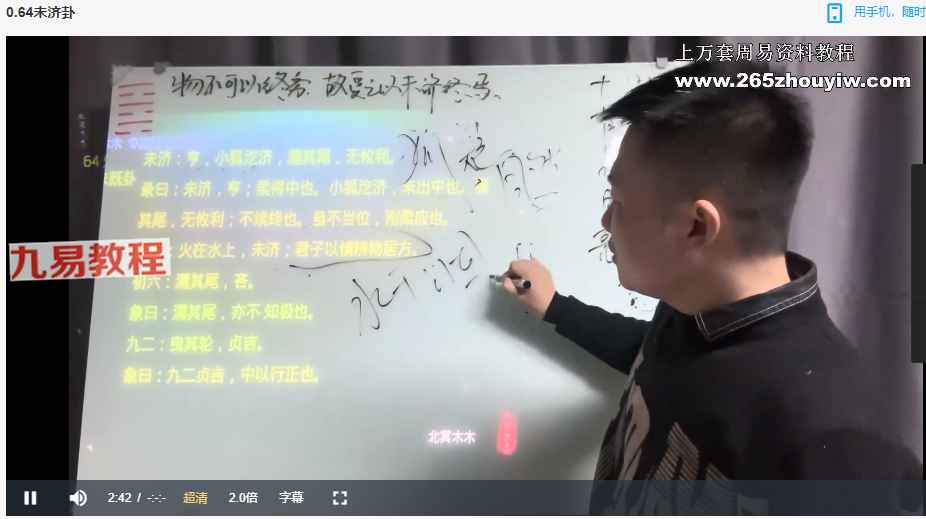 0.64未济卦
用手机，随时
上万套周易资料教程
www.265zhouyiw.com
物不可以终穷.故受之以未济终焉.
64
未济：亨，小狐汔济，濡其尾，无攸利。
彖曰：未济，亨；柔得中也。小狐汔济，未出中也。濡
其尾，无攸利；不续终也。虽不当位，刚柔应也。
火在水上，未济；君子以慎辨物居方。
九易教程
初六：濡其尾，吝。
象曰：濡其尾，亦不知极也。
九二：曳其轮，贞吉。
象曰：九二贞吉，中以行正也。
北冥木木
2:42 / -:-:-
超清
2.0倍
字幕